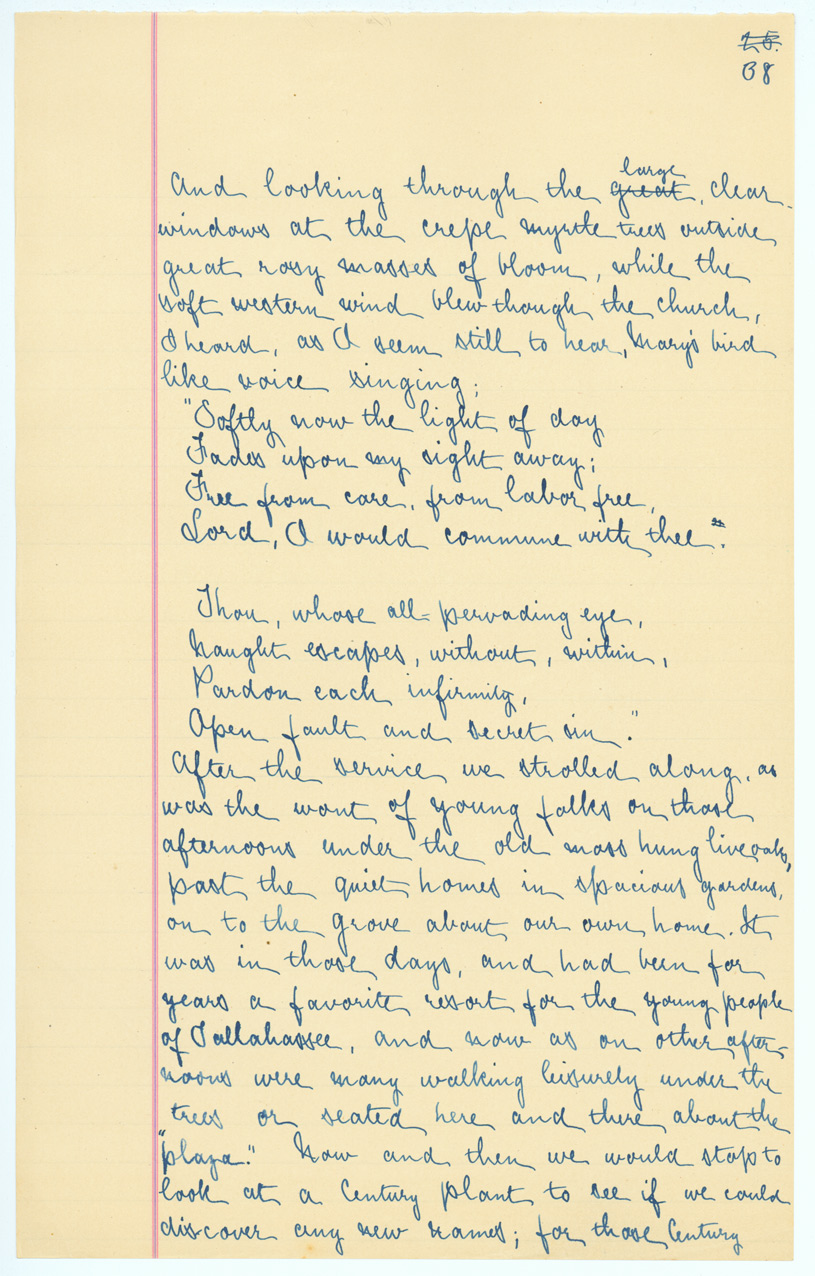 25.
B8
large
And looking through the great, clear
windows at the crepe myrtle trees outside
great rosy masses of bloom, while the
soft western wind blew though the church,
I heard, as I seem still to hear, Mary's bird
like voice singing;
"Softly now the light of day
Fades upon my sight away;
Free from care, from labor free,
Lord, I would commune with thee".
Thou, whose all-pervading eye,
Naught escapes, without, within,
Pardon each infirmity,
Open fault and secret sin."
After the service we strolled along, as
was the wont of young folks on those
afternoons under the old moss hung live oaks,
past the quiet homes in spacious gardens,
on to the grove about our own home. It
was in those days, and had been for
years a favorite resort for the young people
of Tallahassee, and now as on other after-
noons were many walking leisurely under the
trees or seated here and there about the
"plaza." Now and then we would stop to
look at a Century plant to see if we could
discover any new names; for those Century